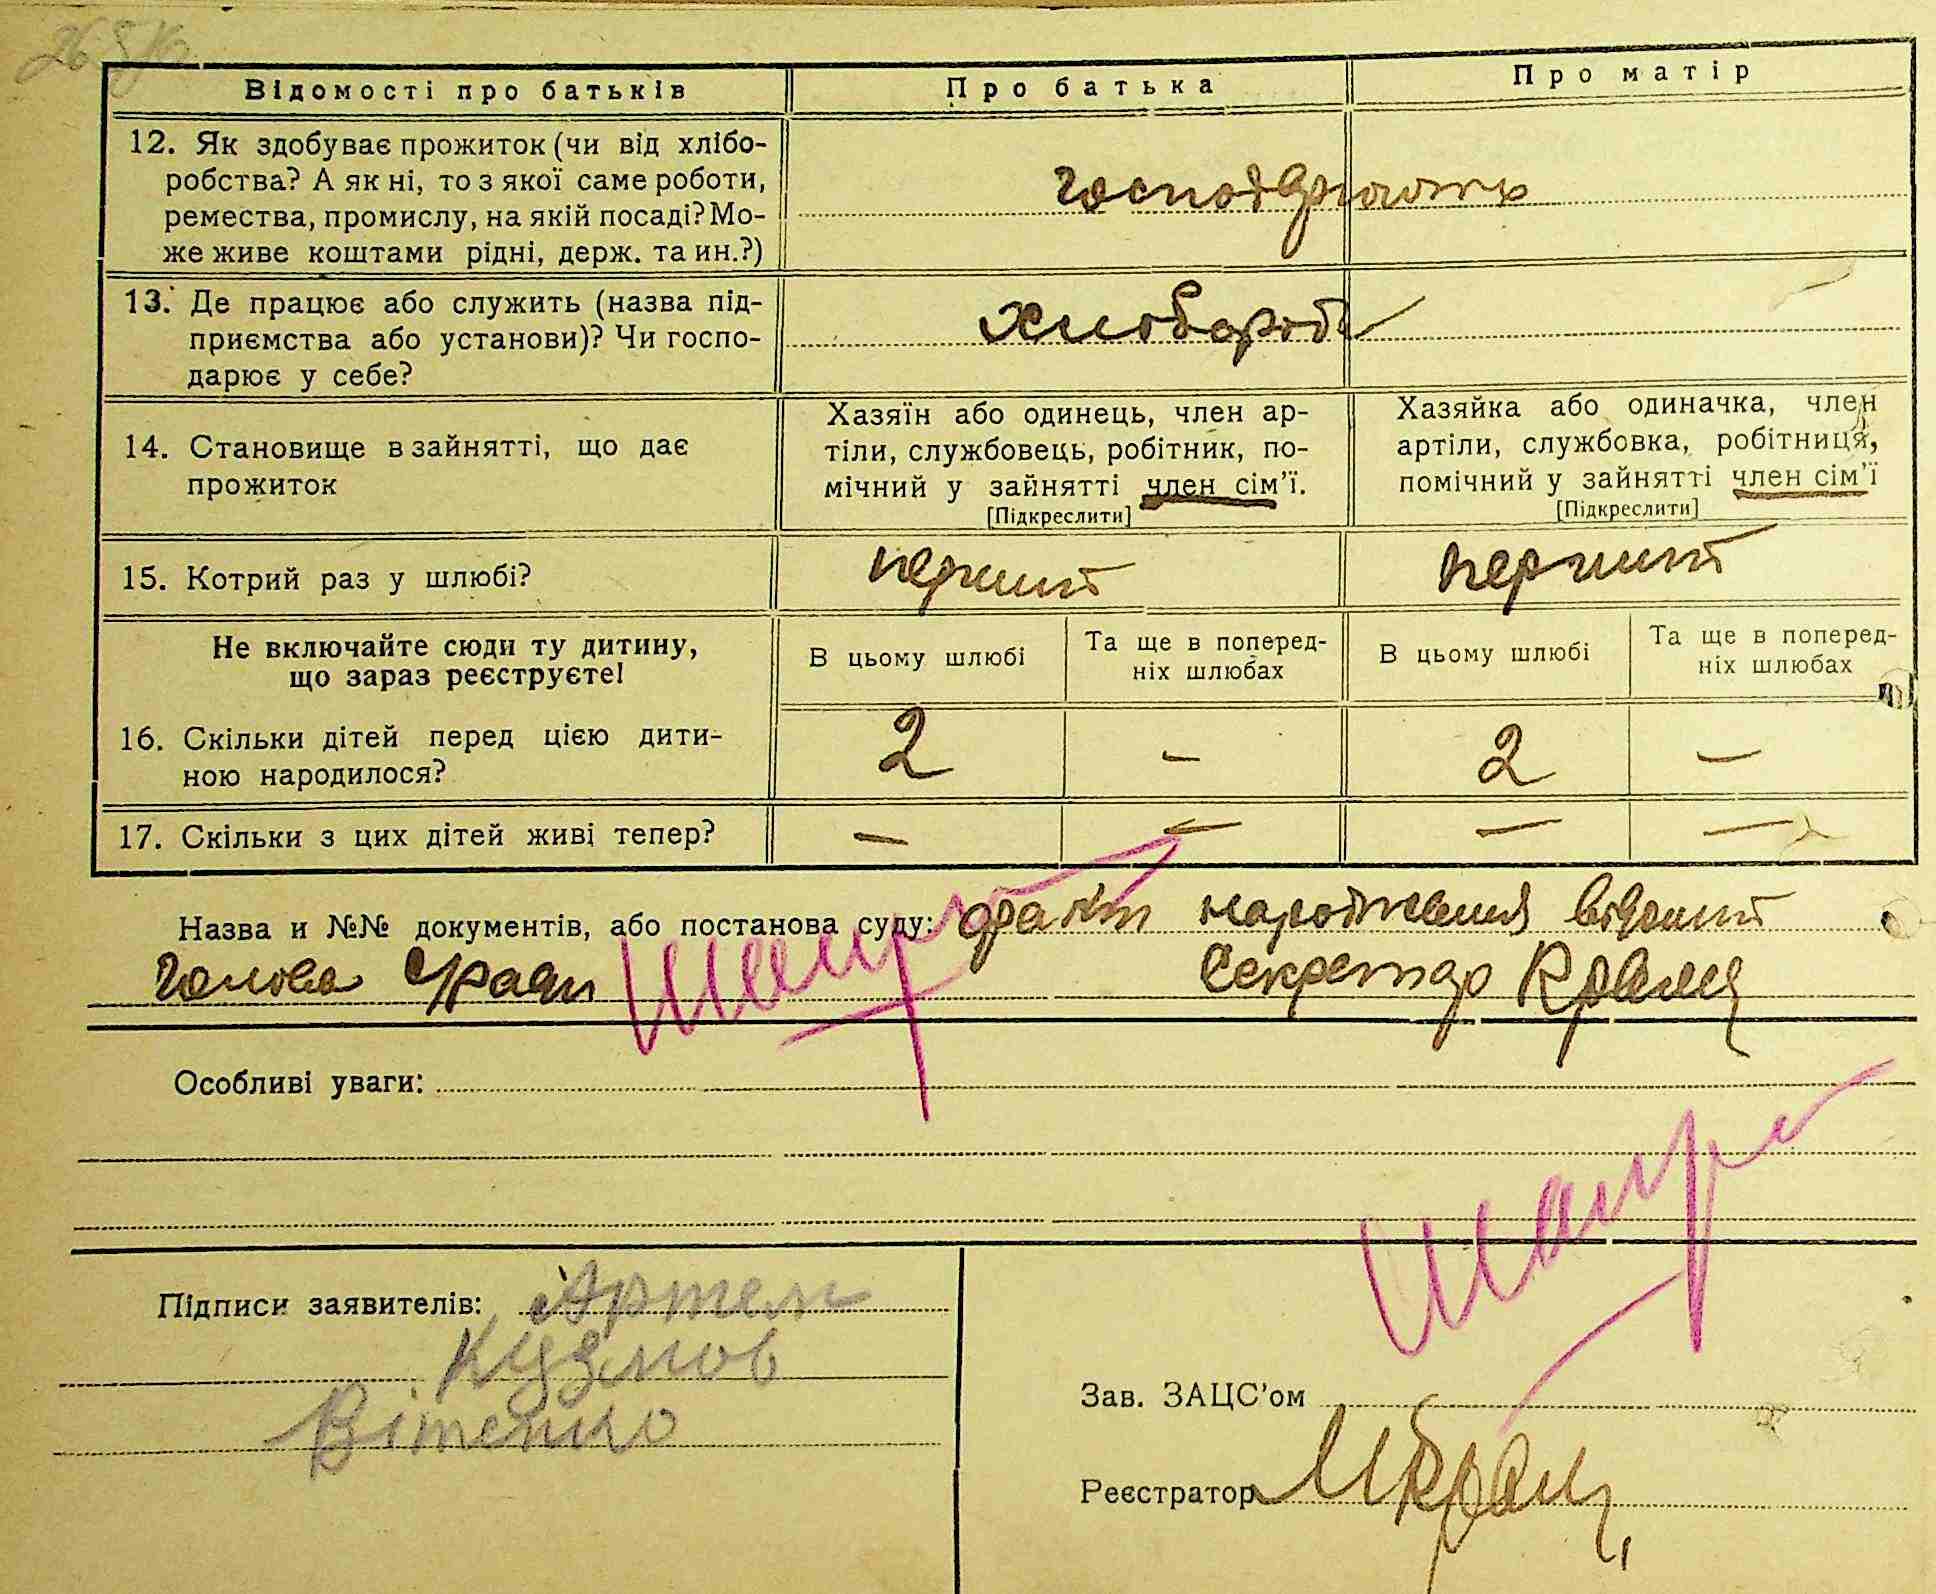 Відомості про батьків
Про батька
Про матір
12. Як здобуває прожиток (чи від хлібо-
робства? А як ні, то з якої саме роботи,
ремества, промислу, на якій посаді? Мо-
же живе коштами рідні, держ. та ин.?)
13. Де працює або служить (назва під-
приємства або установи)? Чи госпо-
дарює у себе?
хлибороб
14. Становище в зайнятті, що дає
прожиток
Хазяїн або одинець, член ар-
тіли, службовець, робітник, по-
мічний у зайнятті член сім’ї.
[Підкреслити]
Хазяйка або одиначка, член
артіли, службовка, робітниця,
помічний у зайнятті член сім’ї
[Підкреслити]
15. Котрий раз у шлюбі?
перший
перший
Не включайте сюди ту дитину,
що зараз реєструєте!
В цьому шлюбі
Та ще в поперед-
ніх шлюбах
В цьому шлюбі
Та ще в поперед-
ніх шлюбах
16. Скільки дітей перед цією дити-
ною народилося?
2
–
2
–
17. Скільки з цих дітей живі тепер?
–
–
–
–
Назва и №№ документів, або постанова суду: факт народження відомий
Голова Секретар
Особливі уваги:
Підписи заявителів: Артем
Кузмов
Вітенко
Зав. ЗАЦС’ом
Реєстратор